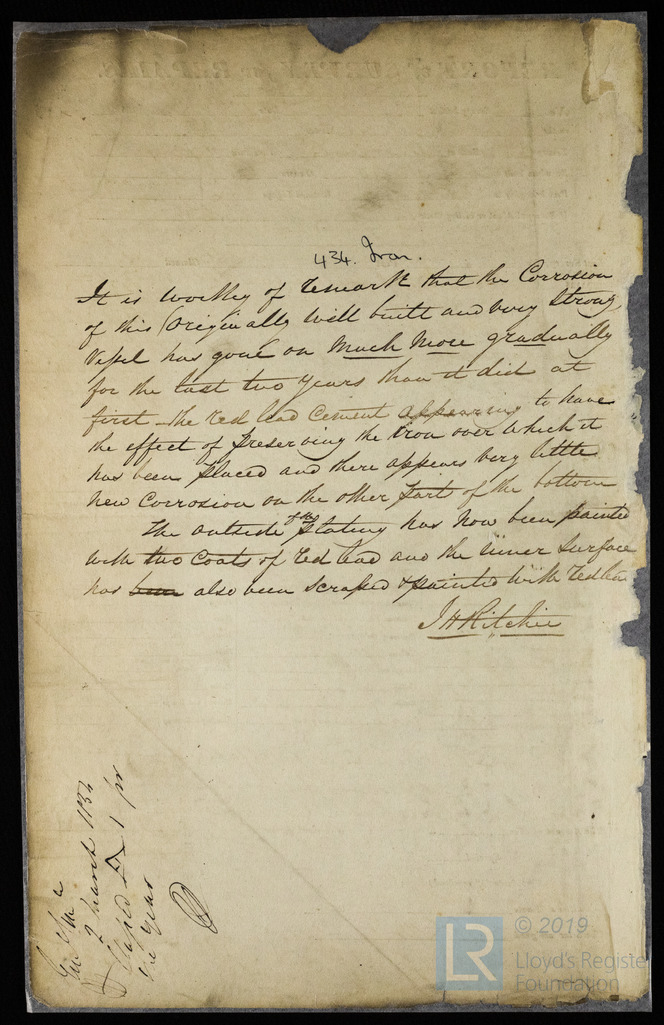 434. Iron.
It is worthy of remark that the Corrosion
of this Originally Well built and very Strong
Vessel has gone on Much More gradually
for the last two years than it did at
first — the red lead Cement appearing to have
the effect of preserving the iron over which it
has been placed and there appears very little
new Corrosion on the other part of the bottom
The outside of the plating has now been painted
with two Coats of red lead and the inner Surface
has been also been scraped & painted with red
J H Ritchie
2 March
A 1 pr
one year
© 2019
LR
Lloyd's Register
Foundation